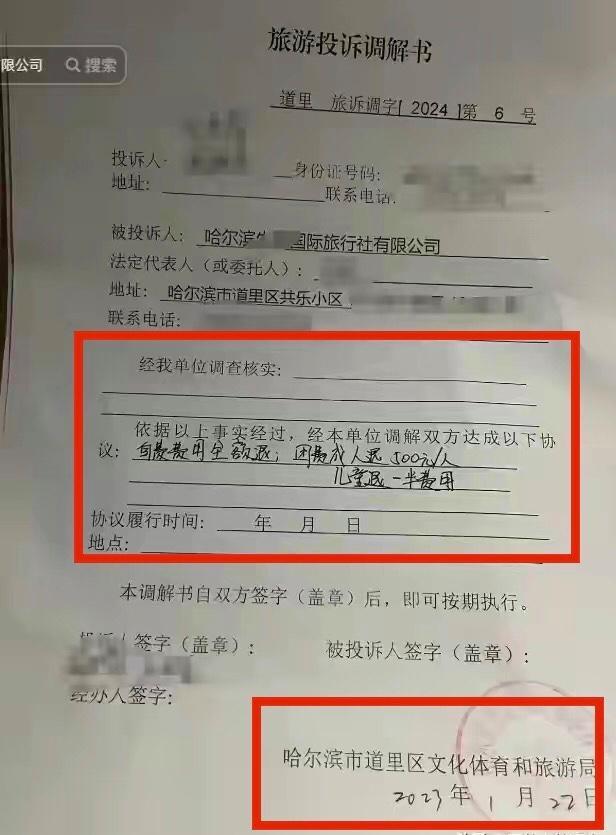 限公司 搜索
旅游投诉调解书
道里 旅诉调字[ 2024 ]第 6 号
投诉人:
身份证号码:
地址:
联系电话:
被投诉人: 哈尔滨 国际旅行社有限公司
法定代表人（或委托人）:
地址: 哈尔滨市道里区共乐小区
联系电话:
经我单位调查核实:
依据以上事实经过，经本单位调解双方达成以下协
议: 自费费用全额退; 团费成人退500元/人
儿童退一半费用
协议履行时间: 年 月 日
地点:
本调解书自双方签字（盖章）后，即可按期执行。
投诉人签字（盖章）: 被投诉人签字（盖章）:
经办人签字:
哈尔滨市道里区文化体育和旅游局
2023年 1 月 22日